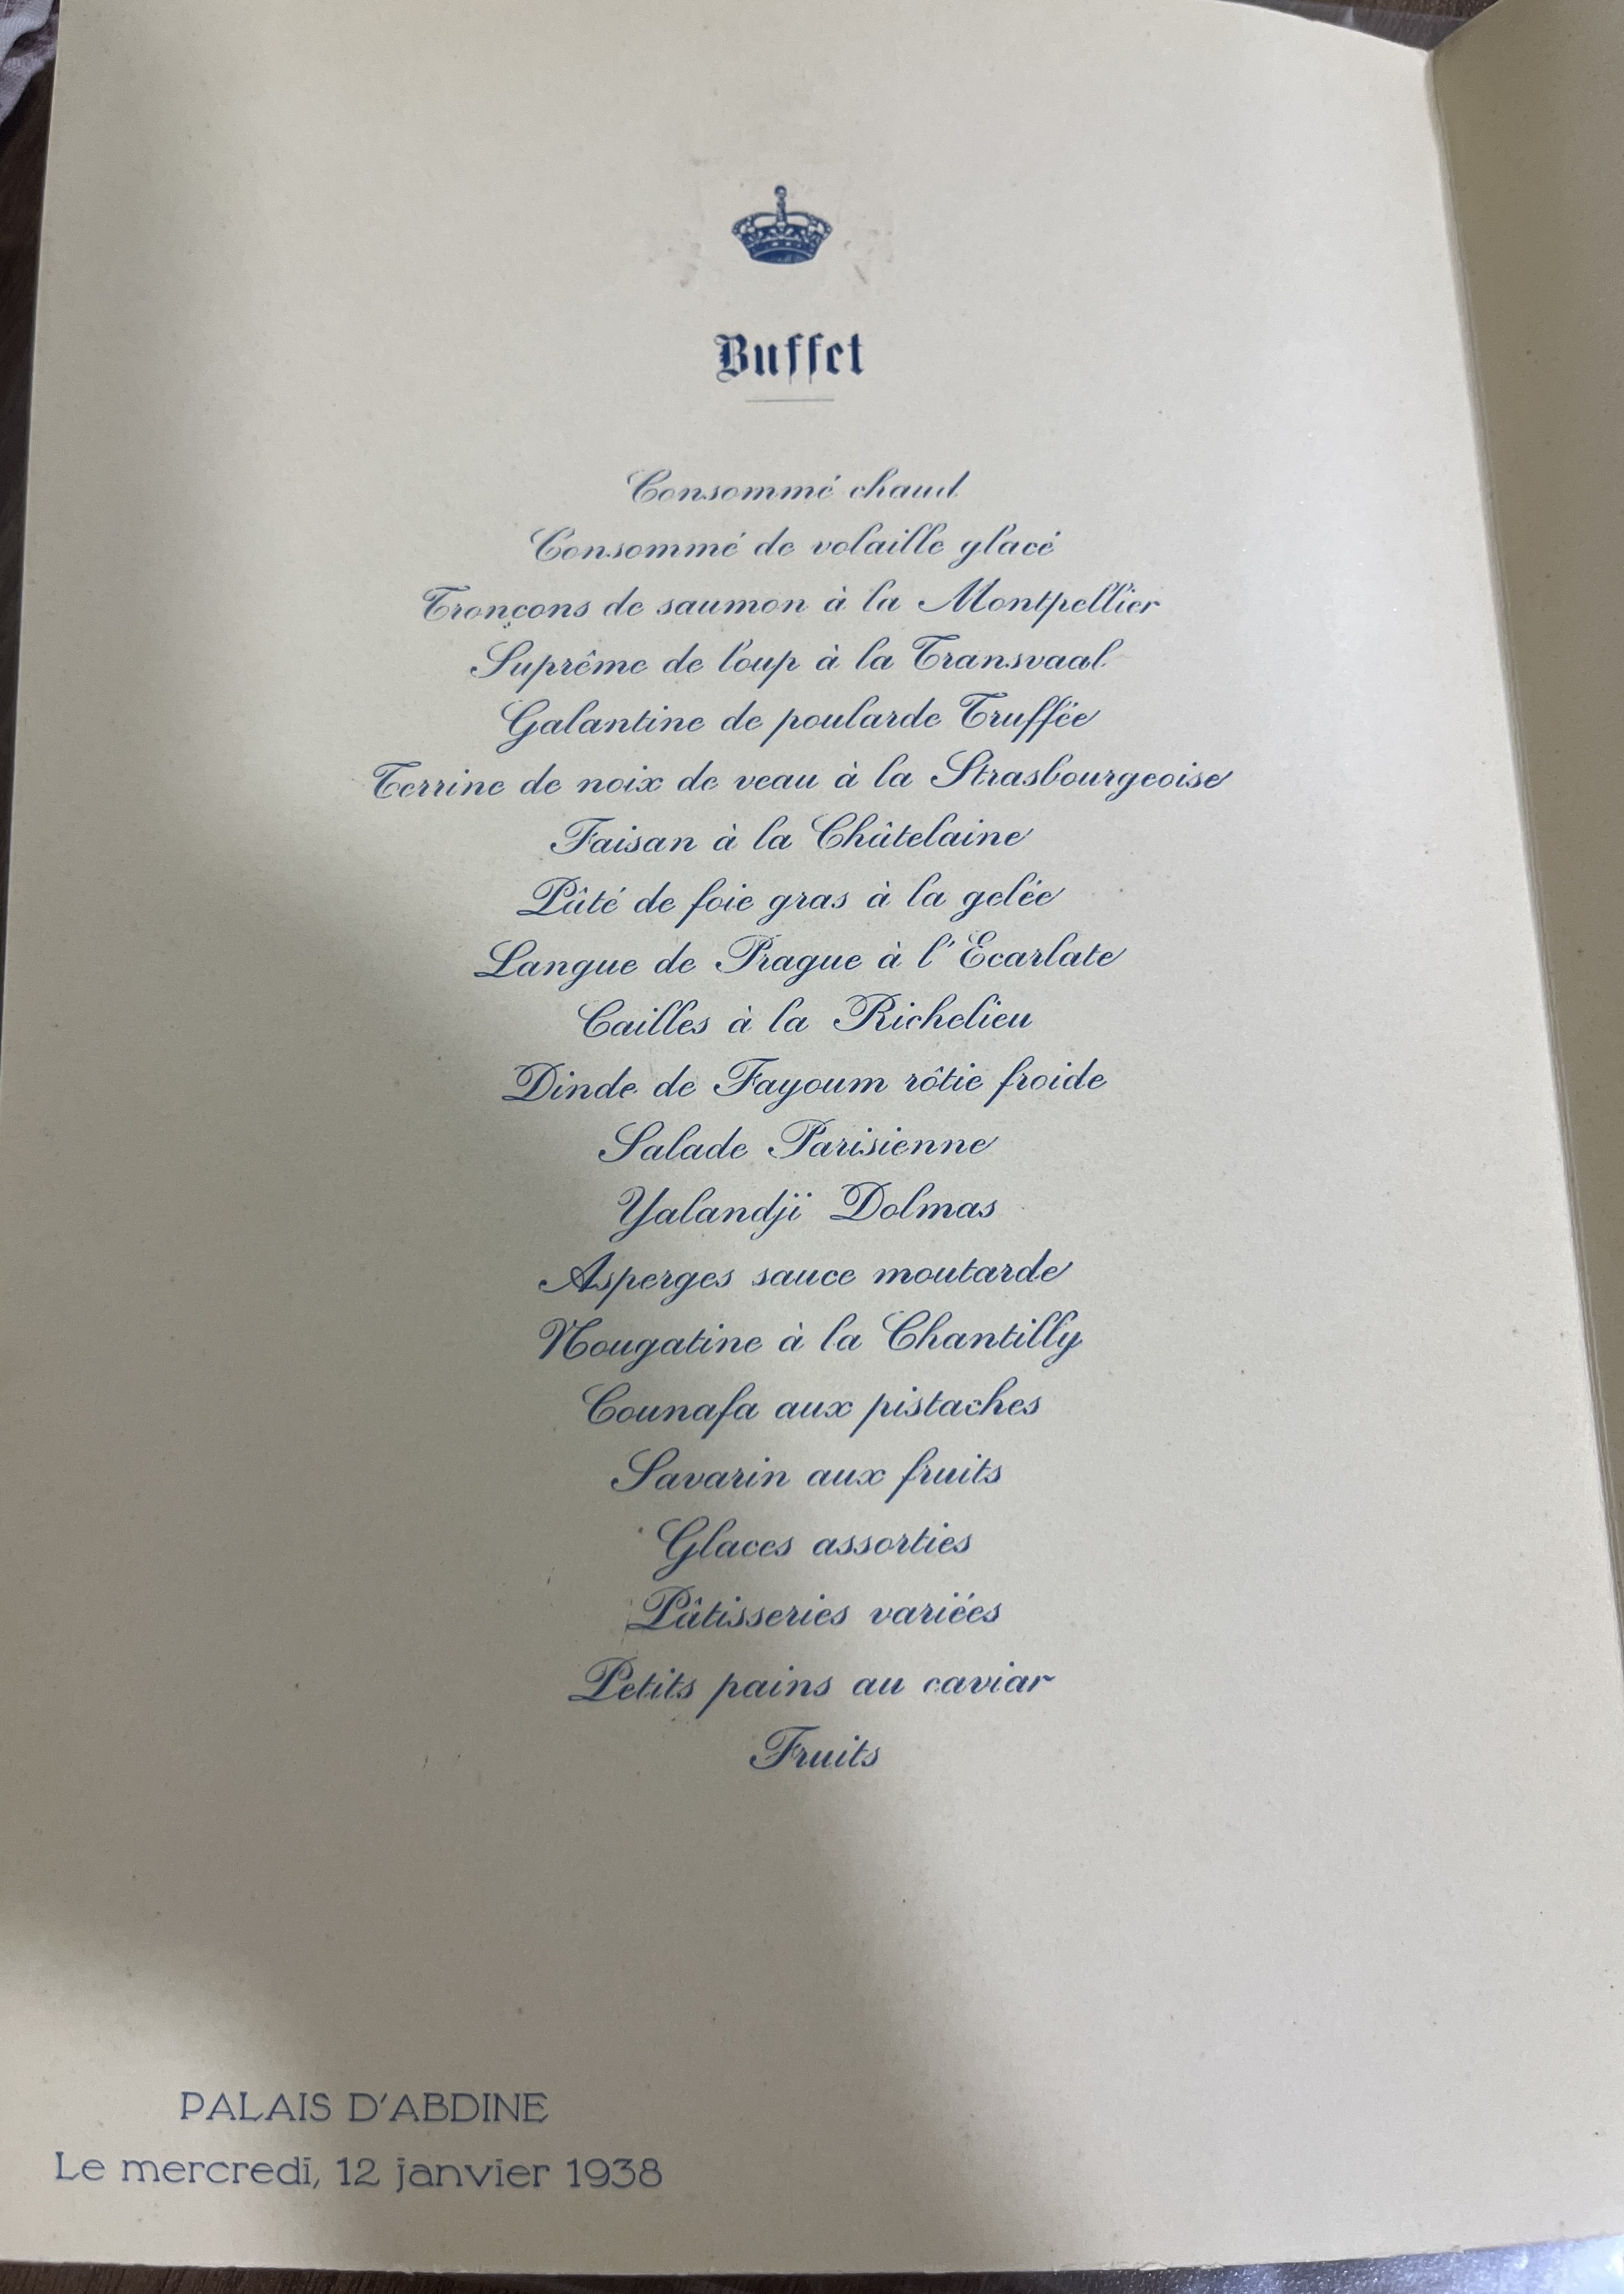 Buffet
Consommé chaud
Consommé de volaille glacé
Tronçons de saumon à la Montpellier
Suprême de loup à la Transvaal
Galantine de poularde Truffée
Terrine de noix de veau à la Strasbourgeoise
Faisan à la Châtelaine
Pâté de foie gras à la gelée
Langue de Prague à l'Ecarlate
Cailles à la Richelieu
Dinde de Fayoum rôtie froide
Salade Parisienne
Yalandji Dolmas
Asperges sauce moutarde
Nougatine à la Chantilly
Counafa aux pistaches
Savarin aux fruits
Glaces assorties
Pâtisseries variées
Petits pains au caviar
Fruits
PALAIS D'ABDINE
Le mercredi, 12 janvier 1938